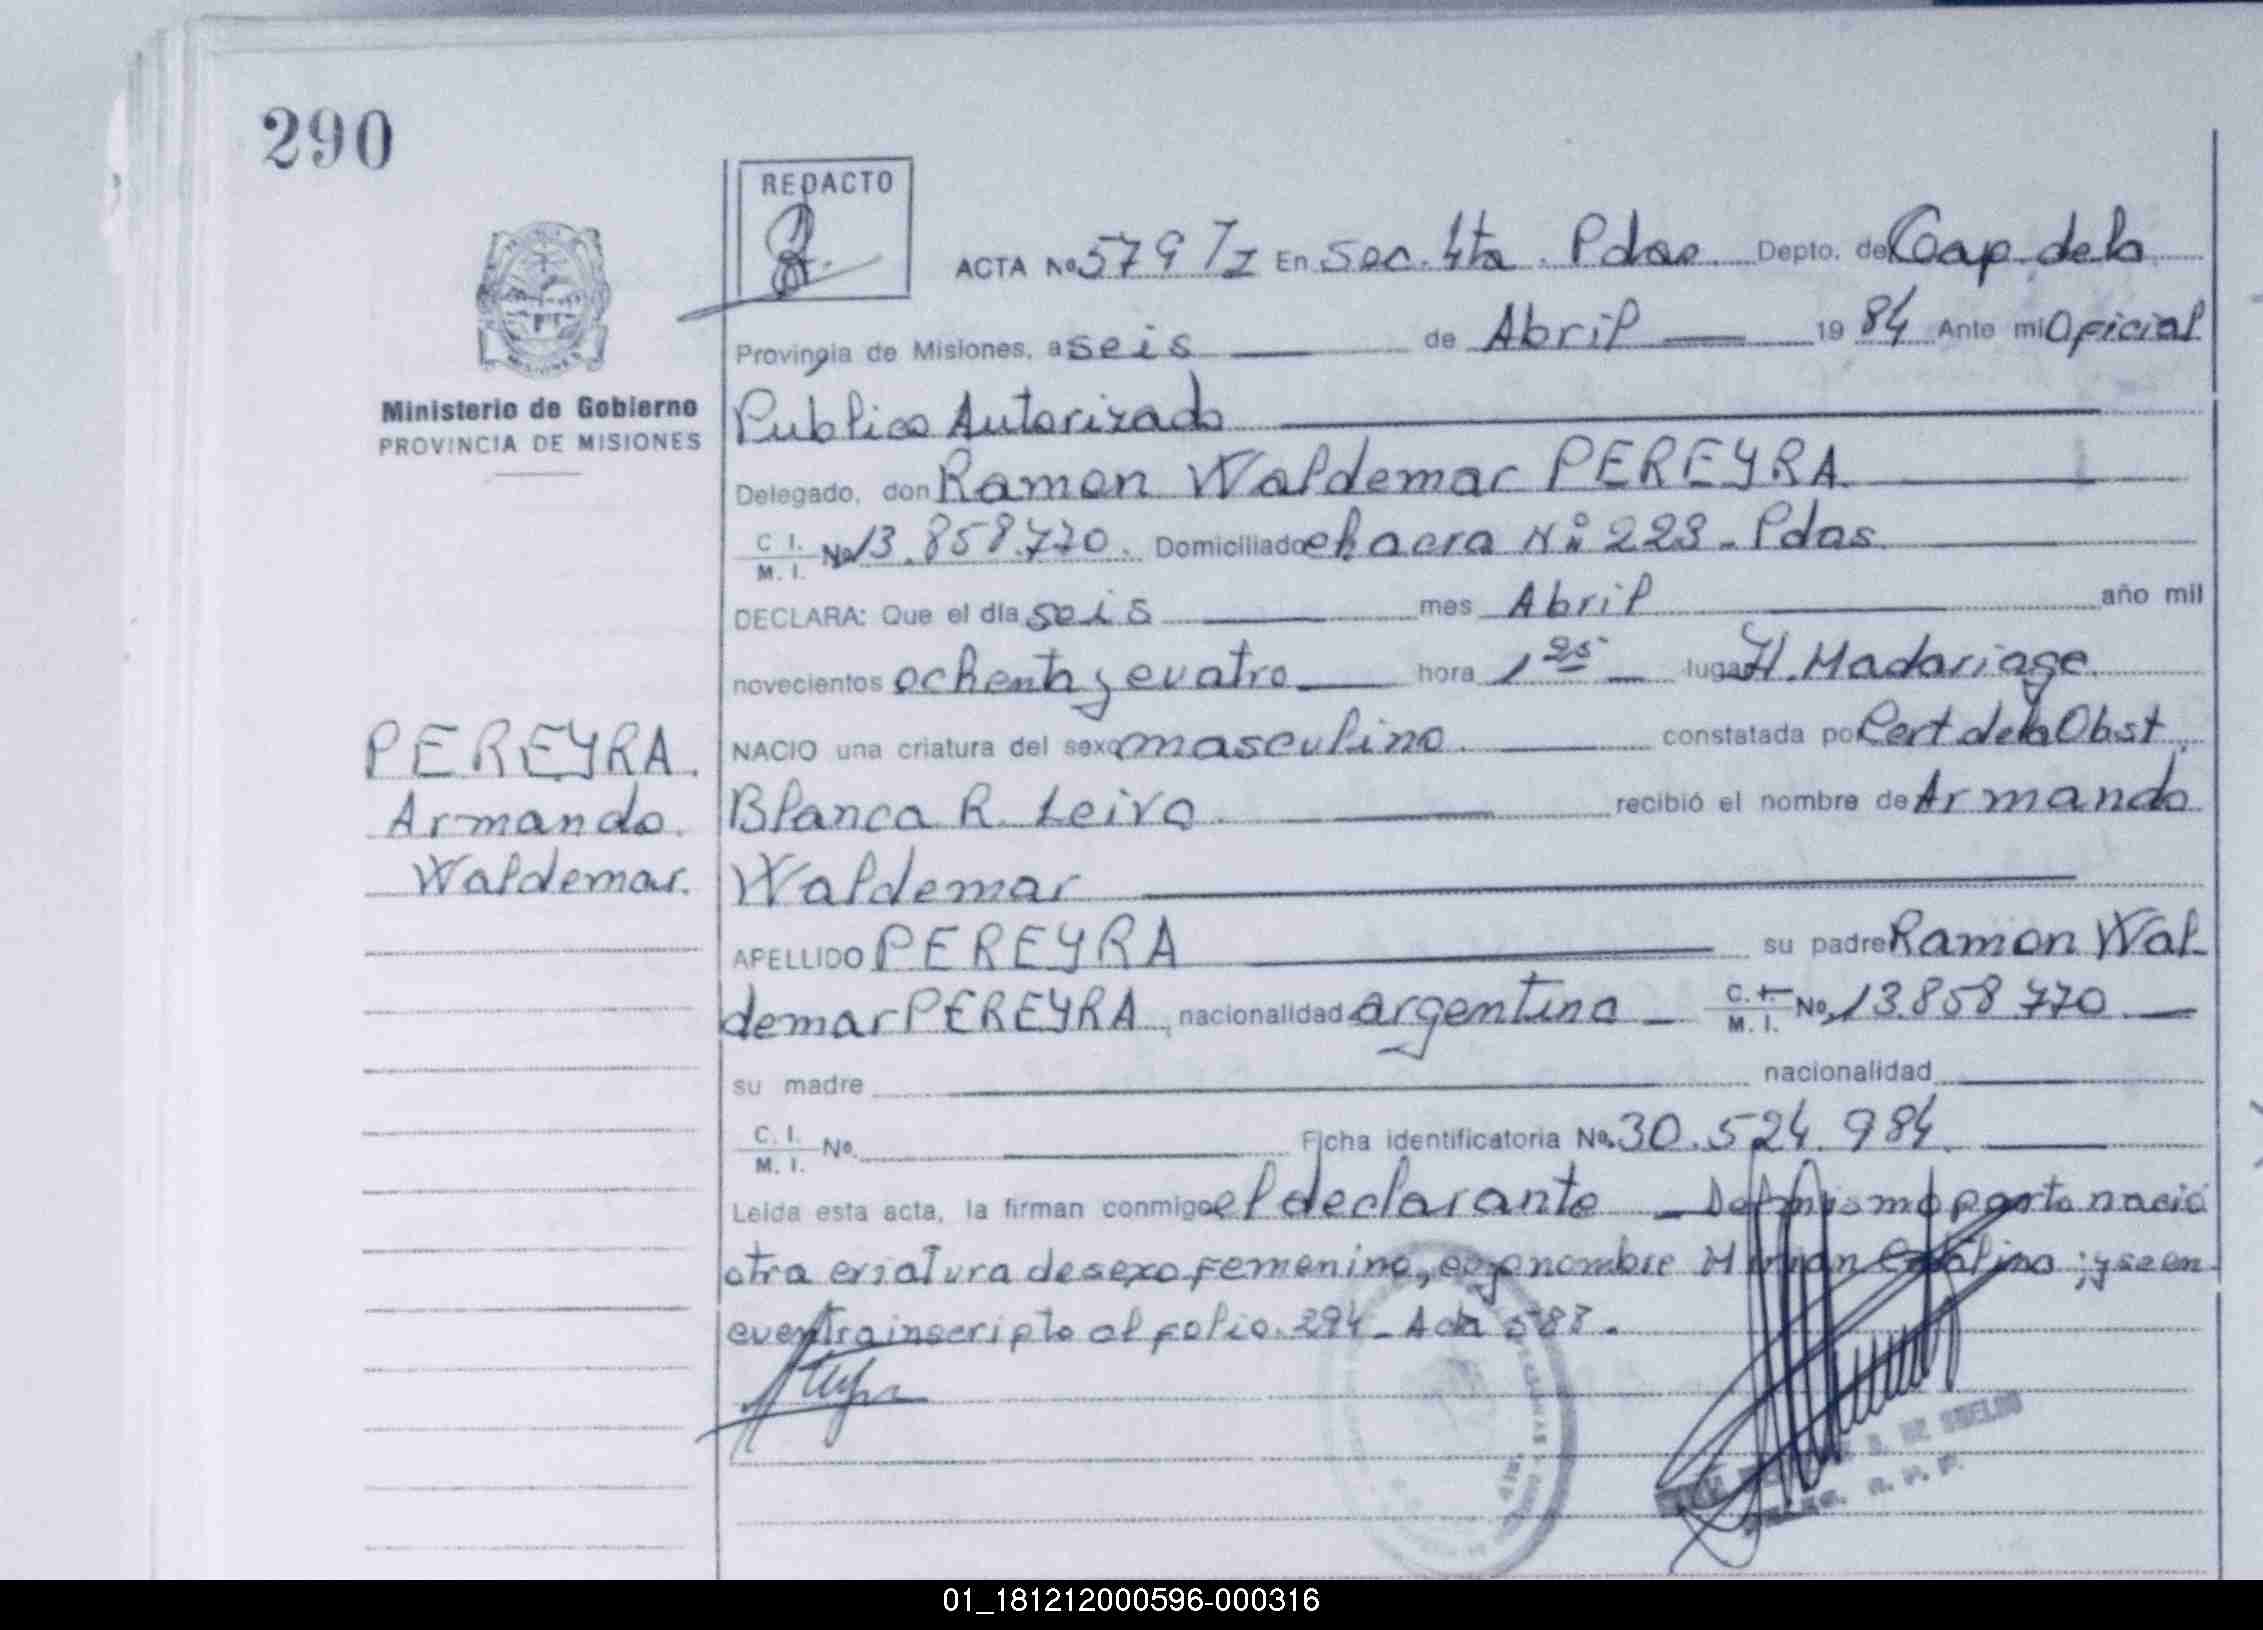 290
REDACTO
ACTA Nº 579 T/I En Sec. 4ta. Pdas Depto. de Cap. de la
Provincia de Misiones, a seis de Abril 1984 Ante mi Oficial
Ministerio de Gobierno
PROVINCIA DE MISIONES
Publico Autorizado
Delegado, don Ramon Waldemar PEREYRA
C. I.
M. I. Nº 13.858.770. Domiciliado chacra Nº 223 - Pdas
DECLARA: Que el día seis mes Abril año mil
novecientos ochenta y cuatro hora 1 25 lugar H. Madariaga
NACIO una criatura del sexo masculino. constatada por Cert de la Obst.
Blanca R. Leiva recibió el nombre de Armando
Waldemar
PEREYRA.
Armando.
Waldemar.
APELLIDO PEREYRA su padre Ramon Wal
demar PEREYRA, nacionalidad argentina C. I.
M. I. Nº 13.858 770
su madre nacionalidad
C. I.
M. I. Nº Ficha identificatoria Nº 30.524.984.
Leida esta acta, la firman conmigo el declarante Del mismo parto nació
otra criatura de sexo femenino, cuyo nombre ; y se en
cuentra inscripto al folio 294 - Acta 587.
DE SUELDO
01_181212000596-000316